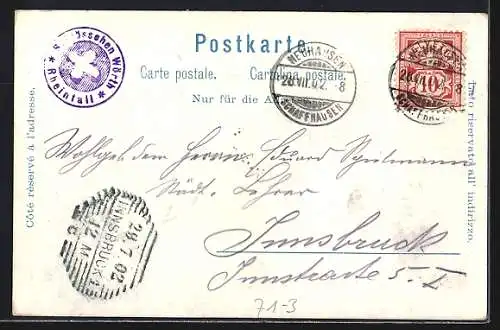 Schlösschen Wörth
* Rheinfall *
Postkarte.
Carte postale. Cartolina postale.
Nur für die
NEUHAUSEN
26.VII.02. - 8
(SCHAFFHAUSEN)
NEUHAUSEN
26.VII.02. 8
SCHAFFHAUSEN
10
Côté réservé à l'adresse.
Lato riservato all' indirizzo.
Wohlgeb. dem Herrn Eduard Spielmann
Städt. Lehrer
Innsbruck
Innstrasse 5. I
INNSBRUCK
29.7.02
12 M
71-3